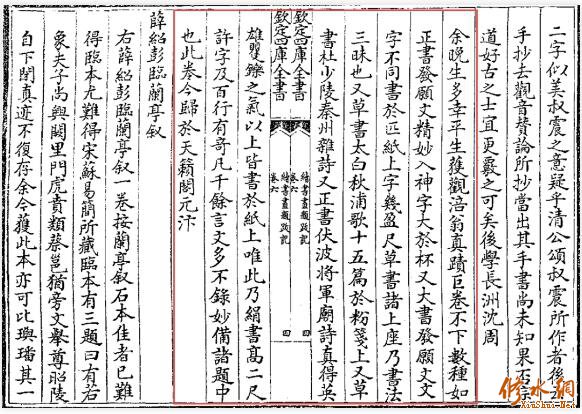 二字似美叔震之意疑乎清公頌叔震所作者後云
手抄去觀音贊論所抄當出其手書尚未知果否宗
道好古之士宜更覈之可矣後學長洲沈周
余晚生多幸平生獲觀涪翁真蹟巨卷不下數種如
正書發願文精妙入神字大於杯又大書發願文文
字不同書於匹紙上字幾盈尺草書諸上座乃書法
三昧也又草書太白秋浦歌十五篇於粉箋上又草
書杜少陵秦州雜詩又正書伏波將軍廟詩真得英
欽定四庫全書
續書畫題跋記
卷六
四
欽定四庫全書
續書畫題跋記
卷六
四
雄矍鑠之氣以上皆書於紙上唯此乃絹書高二尺
許字及百行有奇凡千餘言文多不錄妙備諸題中
也此卷今歸於天籟閣元汴
薛紹彭臨蘭亭叙
右薛紹彭臨蘭亭叙一卷按蘭亭叙石本佳者已難
得臨本尤難得宋蘇易簡所藏臨本有三題曰有若
象夫子尚興闕里門虎賁類蔡邕猶旁文舉尊昭陵
自下閉真迹不復存余今獲此本亦可比璵璠其一
修水網
XiuShui.Net